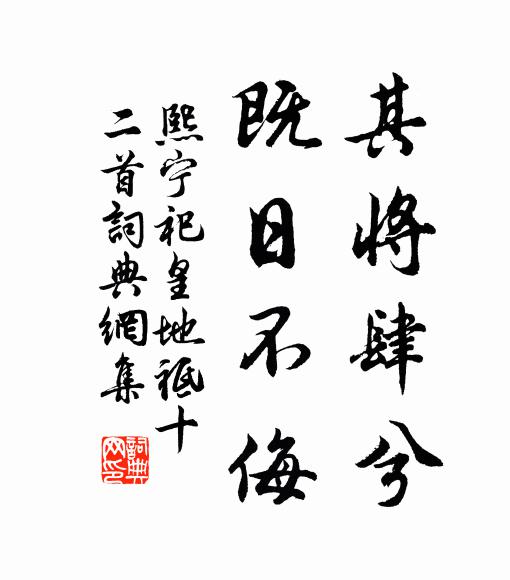 其将肆兮
既日不侮
熙宁祀皇地祇十
二首詞典網集
詞典
网印